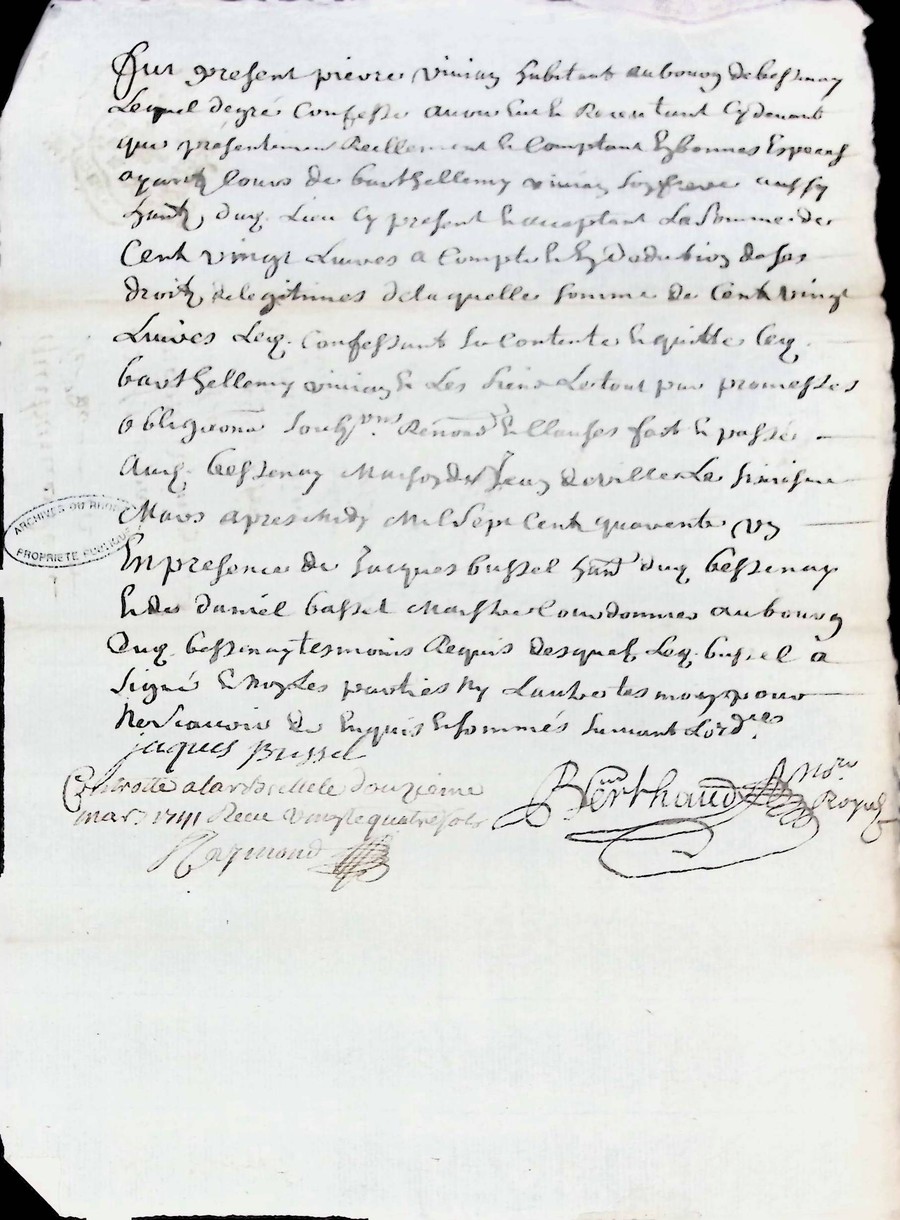 Fut present pierre viviay habitant au bourg de bessenay
Lequel de gré Confesse avoir Eu et Receu tant Cy devant
que présentement Reellement et Comptant En bonnes Especes
ayants Cours de barthellemy viviay son frere aussy
hantz duq. Lieu Cy present et acceptant La Somme de
Cent vingt Livres a Compte et En Deduction de ses
droits de legitimes de laquelle somme de Cent vingt
Livres Leq. Confessant se contente et quitte leq.
barthellemy viviay et Les siens Le tout par promesses
obligaons Soubzons Renons et Clauses fait et passé
Auq. bessenay Maison de
Mars apres Midy Mil Sept Cent quarente un
En presence de Jacques bussel hant duq bessenay
Et de daniel basset Maistre Courdonnier au bourg
Duq. bessenay tesmoins Requis Desquels Leq. bussel a
signé et non Les parties ny Lautre tesmoin pour
ne scavoir de Enquis et sommés suivant Lordces
jaques Bussel
Controllé a larbresle le douzieme
mars 1741 Receu vingt quatre sols
Raymond
Berthaud nore Royal
ARCHIVES DU RHÔNE
PROPRIÉTÉ PUBLIQUE